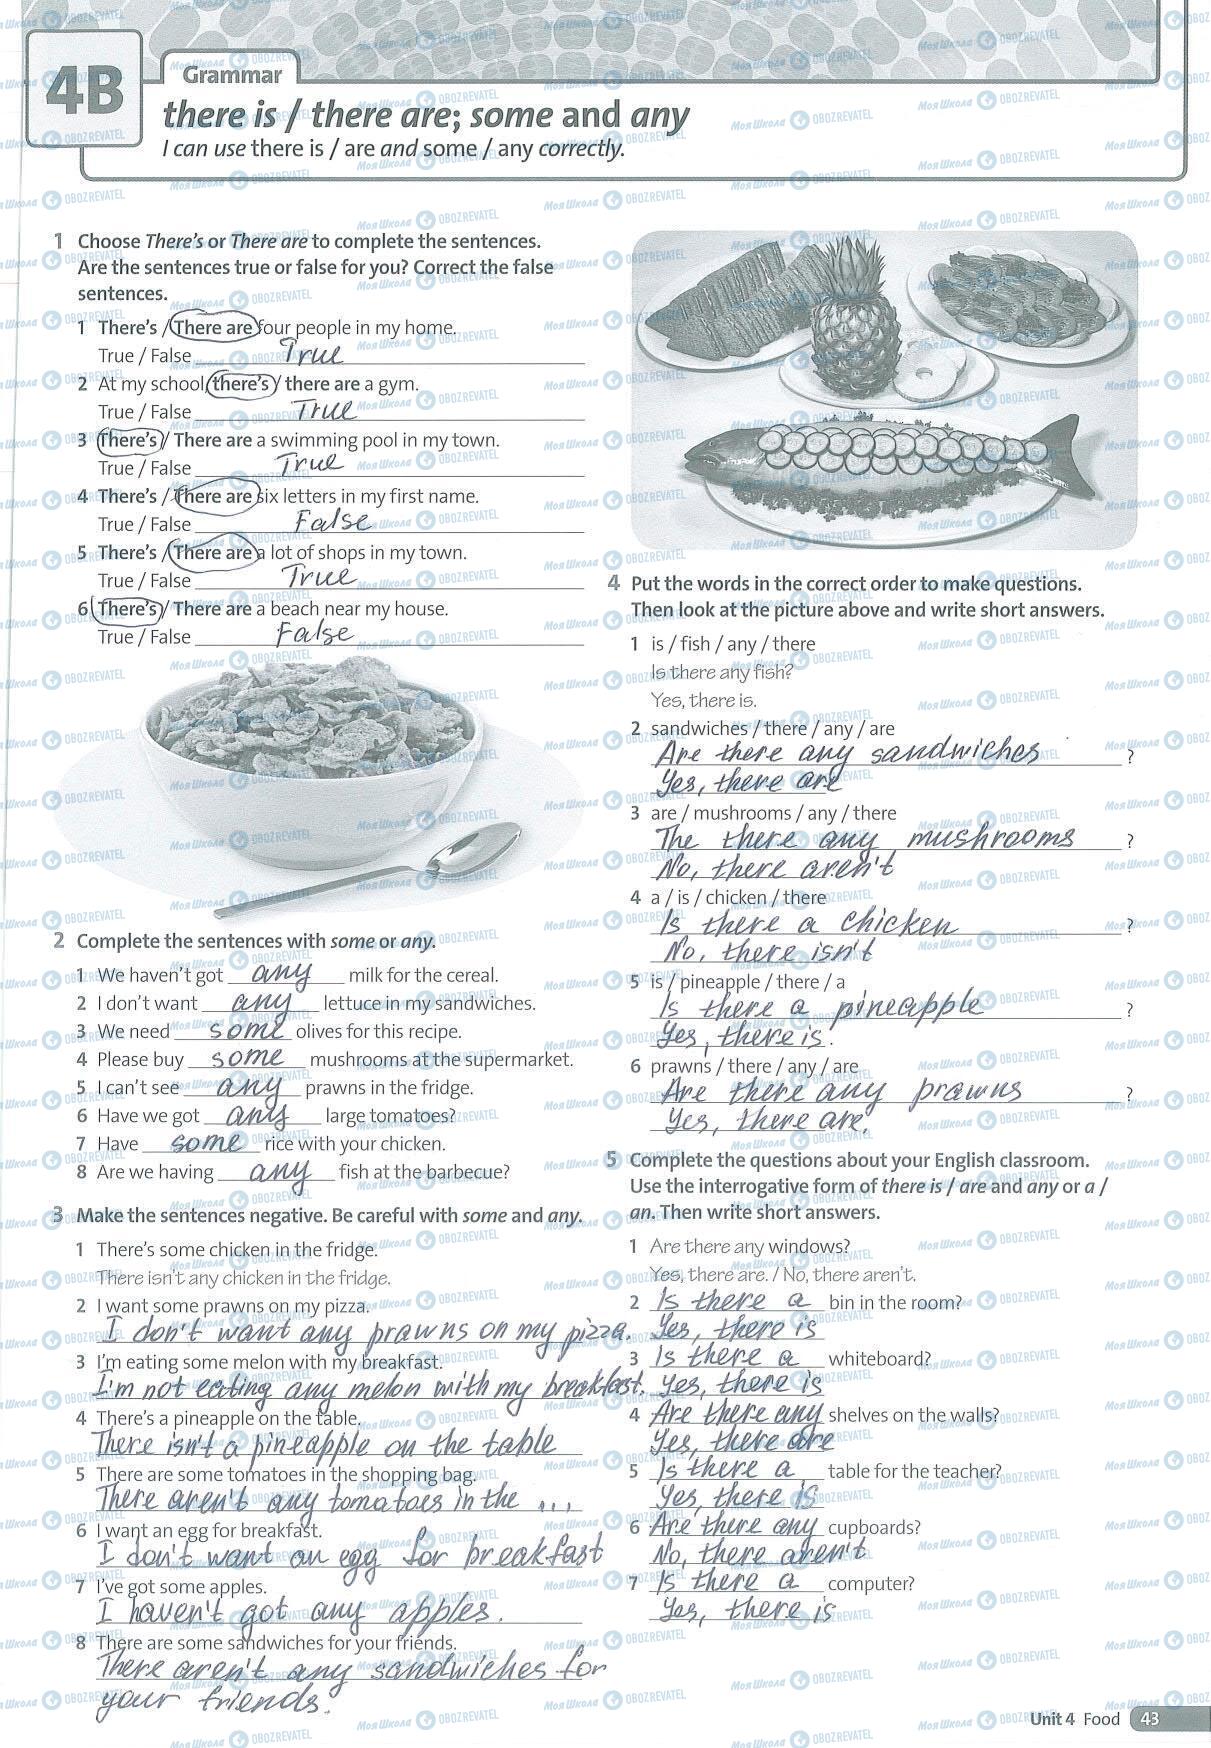 4B
Grammar
there is / there are; some and any
I can use there is / are and some / any correctly.
1 Choose There's or There are to complete the sentences.
Are the sentences true or false for you? Correct the false
sentences.
1 There's / There are four people in my home.
True / False True
2 At my school, there's / there are a gym.
True / False True
3 There's / There are a swimming pool in my town.
True / False True
4 There's / There are six letters in my first name.
True / False False
5 There's / There are a lot of shops in my town.
True / False True
6 There's / There are a beach near my house.
True / False False
2 Complete the sentences with some or any.
1 We haven't got any milk for the cereal.
2 I don't want any lettuce in my sandwiches.
3 We need some olives for this recipe.
4 Please buy some mushrooms at the supermarket.
5 I can't see any prawns in the fridge.
6 Have we got any large tomatoes?
7 Have some rice with your chicken.
8 Are we having any fish at the barbecue?
3 Make the sentences negative. Be careful with some and any.
1 There's some chicken in the fridge.
There isn't any chicken in the fridge.
2 I want some prawns on my pizza.
I don't want any prawns on my pizza.
3 I'm eating some melon with my breakfast.
I'm not eating any melon with my breakfast.
4 There's a pineapple on the table.
There isn't a pineapple on the table
5 There are some tomatoes in the shopping bag.
There aren't any tomatoes in the ...
6 I want an egg for breakfast.
I don't want an egg for breakfast
7 I've got some apples.
I haven't got any apples.
8 There are some sandwiches for your friends.
There aren't any sandwiches for
your friends.
4 Put the words in the correct order to make questions.
Then look at the picture above and write short answers.
1 is / fish / any / there
Is there any fish?
Yes, there is.
2 sandwiches / there / any / are
Are there any sandwiches ?
Yes, there are
3 are / mushrooms / any / there
The there any mushrooms ?
No, there aren't
4 a / is / chicken / there
Is there a chicken ?
No, there isn't
5 is / pineapple / there / a
Is there a pineapple ?
Yes, there is.
6 prawns / there / any / are
Are there any prawns ?
Yes, there are.
5 Complete the questions about your English classroom.
Use the interrogative form of there is / are and any or a /
an. Then write short answers.
1 Are there any windows?
Yes, there are. / No, there aren't.
2 Is there a bin in the room?
Yes, there is
3 Is there a whiteboard?
Yes, there is
4 Are there any shelves on the walls?
Yes, there are
5 Is there a table for the teacher?
Yes, there is
6 Are there any cupboards?
No, there aren't
7 Is there a computer?
Yes, there is
Unit 4 Food 43
Моя Школа OBOZREVATEL